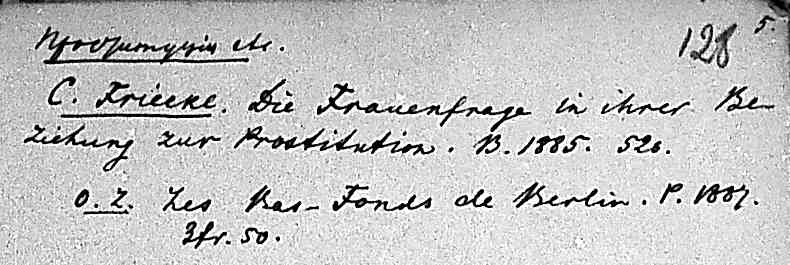 128 5.
C. Friecke. Die Frauenfrage in ihrer Be-
ziehung zur Prostitution. B. 1885.
O. Z. Les Bas-Fonds de Berlin. P. 1887.
3fr. 50.